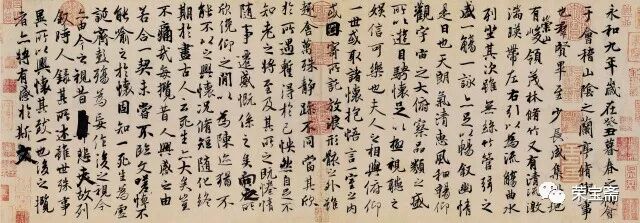 永和九年歲在癸丑暮春之初會
于會稽山陰之蘭亭脩禊事
也群賢畢至少長咸集此地
有崇山峻領茂林脩竹又有清流激
湍暎帶左右引以為流觴曲水
列坐其次雖無絲竹管弦之
盛一觴一詠亦足以暢敘幽情
是日也天朗氣清惠風和暢仰
觀宇宙之大俯察品類之盛
所以遊目騁懷足以極視聽之
娛信可樂也夫人之相與俯仰
一世或取諸懷抱悟言一室之內
或因寄所託放浪形骸之外雖
趣舍萬殊靜躁不同當其欣
於所遇暫得於己怏然自足不
知老之將至及其所之既惓情
隨事遷感慨係之矣向之所
欣俛仰之閒以為陳迹猶不
能不以之興懷況脩短隨化終
期於盡古人云死生亦大矣豈
不痛哉每攬昔人興感之由
若合一契未嘗不臨文嗟悼不
能喻之於懷固知一死生為虛
誕齊彭殤為妄作後之視今
亦由今之視昔悲夫故列
敘時人錄其所述雖世殊事
異所以興懷其致一也後之攬
者亦將有感於斯文
荣宝斋